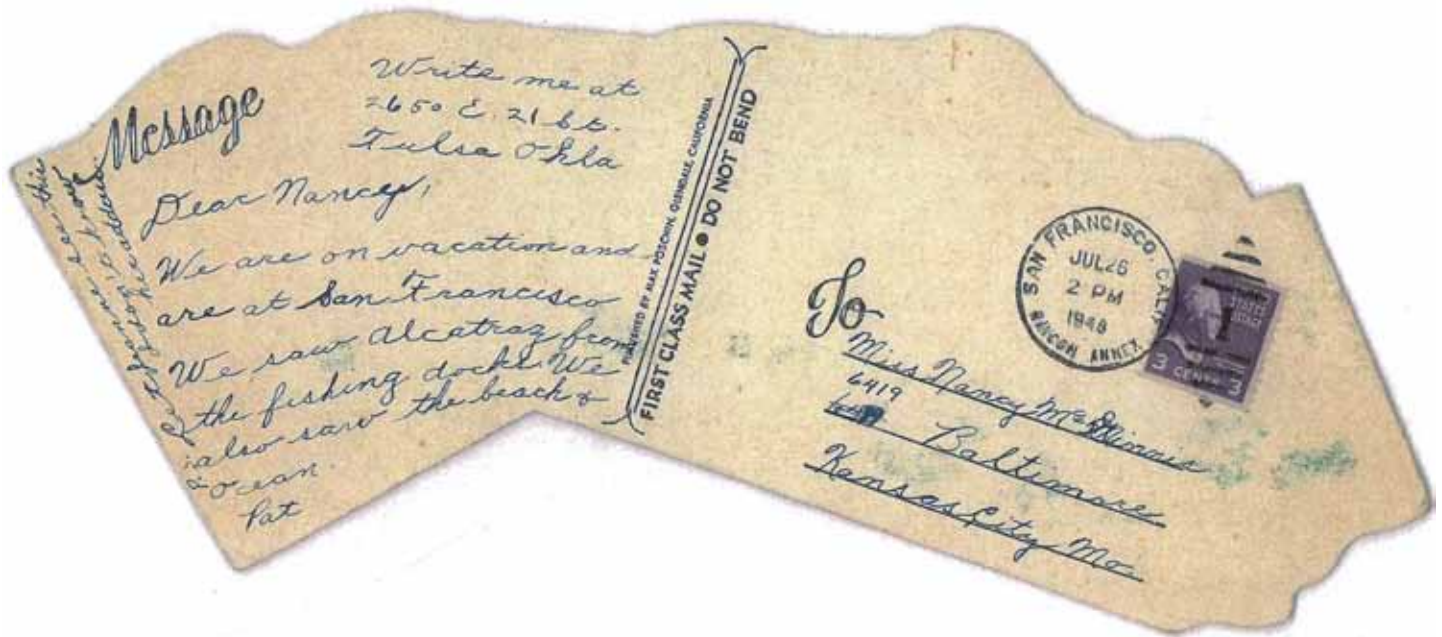 Message
Write me at
2650 E. 21 St.
Tulsa Okla
Dear Nancy,
We are on vacation and
are at San Francisco
We saw Alcatraz from
the fishing docks We
also saw the beach &
Ocean.
Pat
PUBLISHED BY MAX POSCHIN, GLENDALE, CALIFORNIA
FIRST CLASS MAIL ● DO NOT BEND
To
Miss Nancy McGinnis
6419
Baltimore
Kansas City Mo.
SAN FRANCISCO CALIF.
JUL 26
2 PM
1948
RINCON ANNEX
3 CENTS 3